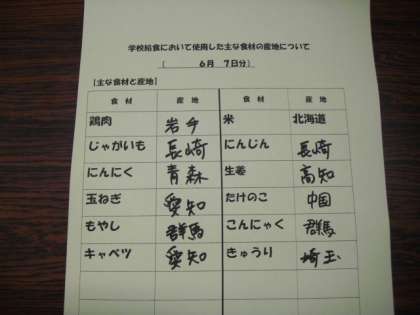 学校給食において使用した主な食材の産地について
( 6月 7日分)
[主な食材と産地]
食材 産地 食材 産地
鶏肉 岩手 米 北海道
じゃがいも 長崎 にんじん 長崎
にんにく 青森 生姜 高知
玉ねぎ 愛知 たけのこ 中国
もやし 群馬 こんにゃく 群馬
キャベツ 愛知 きゅうり 埼玉